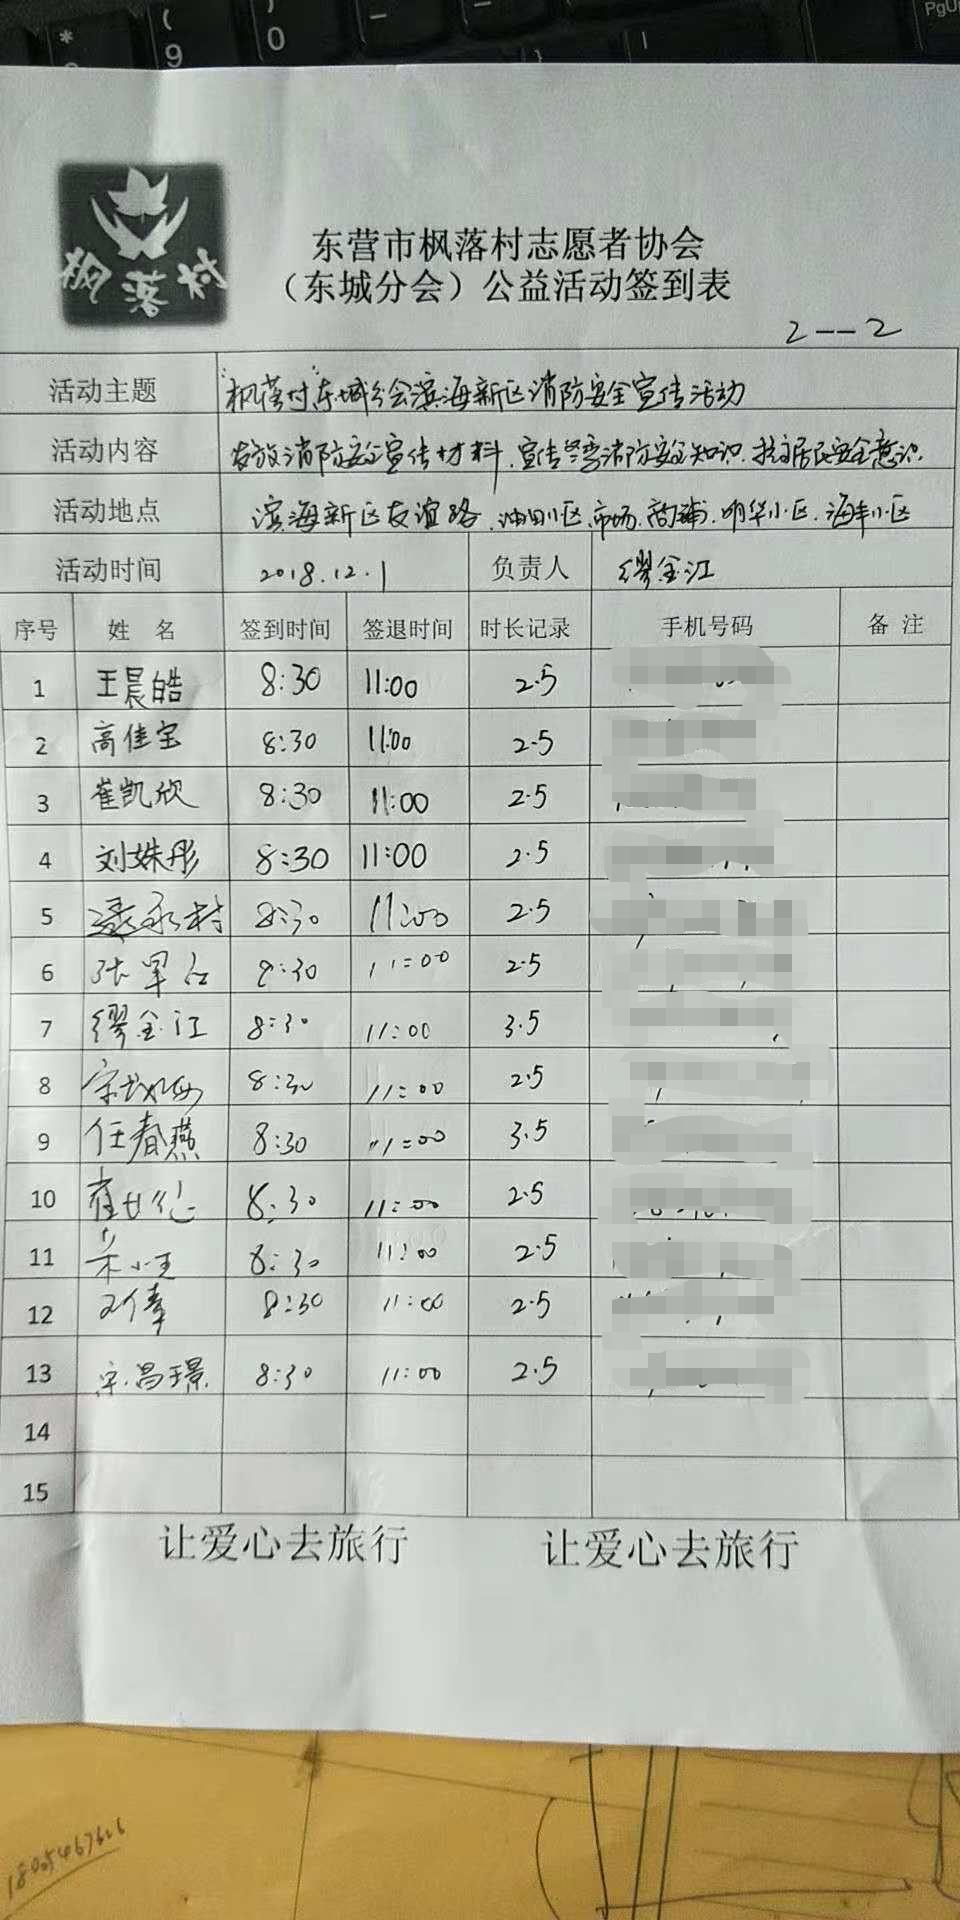 *
(
9
)
0
PgU
枫落村
东营市枫落村志愿者协会
（东城分会）公益活动签到表
2--2
活动主题 "枫落村"东城分会滨海新区消防安全宣传活动
活动内容 发放消防安全宣传材料.宣传冬季消防安全知识.提高居民安全意识.
活动地点 滨海新区友谊路.油田小区.市场.商铺.明华小区.海丰小区
活动时间 2018.12.1 负责人 缪金江
序号 姓名 签到时间 签退时间 时长记录 手机号码 备注
1 王晨皓 8:30 11:00 2.5
2 高佳宝 8:30 11:00 2.5
3 崔凯欣 8:30 11:00 2.5
4 刘姝彤 8:30 11:00 2.5
5 8:30 11:00 2.5
6 张军 8:30 11:00 2.5
7 缪金江 8:30 11:00 3.5
8 8:30 11:00 2.5
9 任春燕 8:30 11:00 3.5
10 8:30 11:00 2.5
11 8:30 11:00 2.5
12 8:30 11:00 2.5
13 宋昌璟 8:30 11:00 2.5
14
15
让爱心去旅行 让爱心去旅行